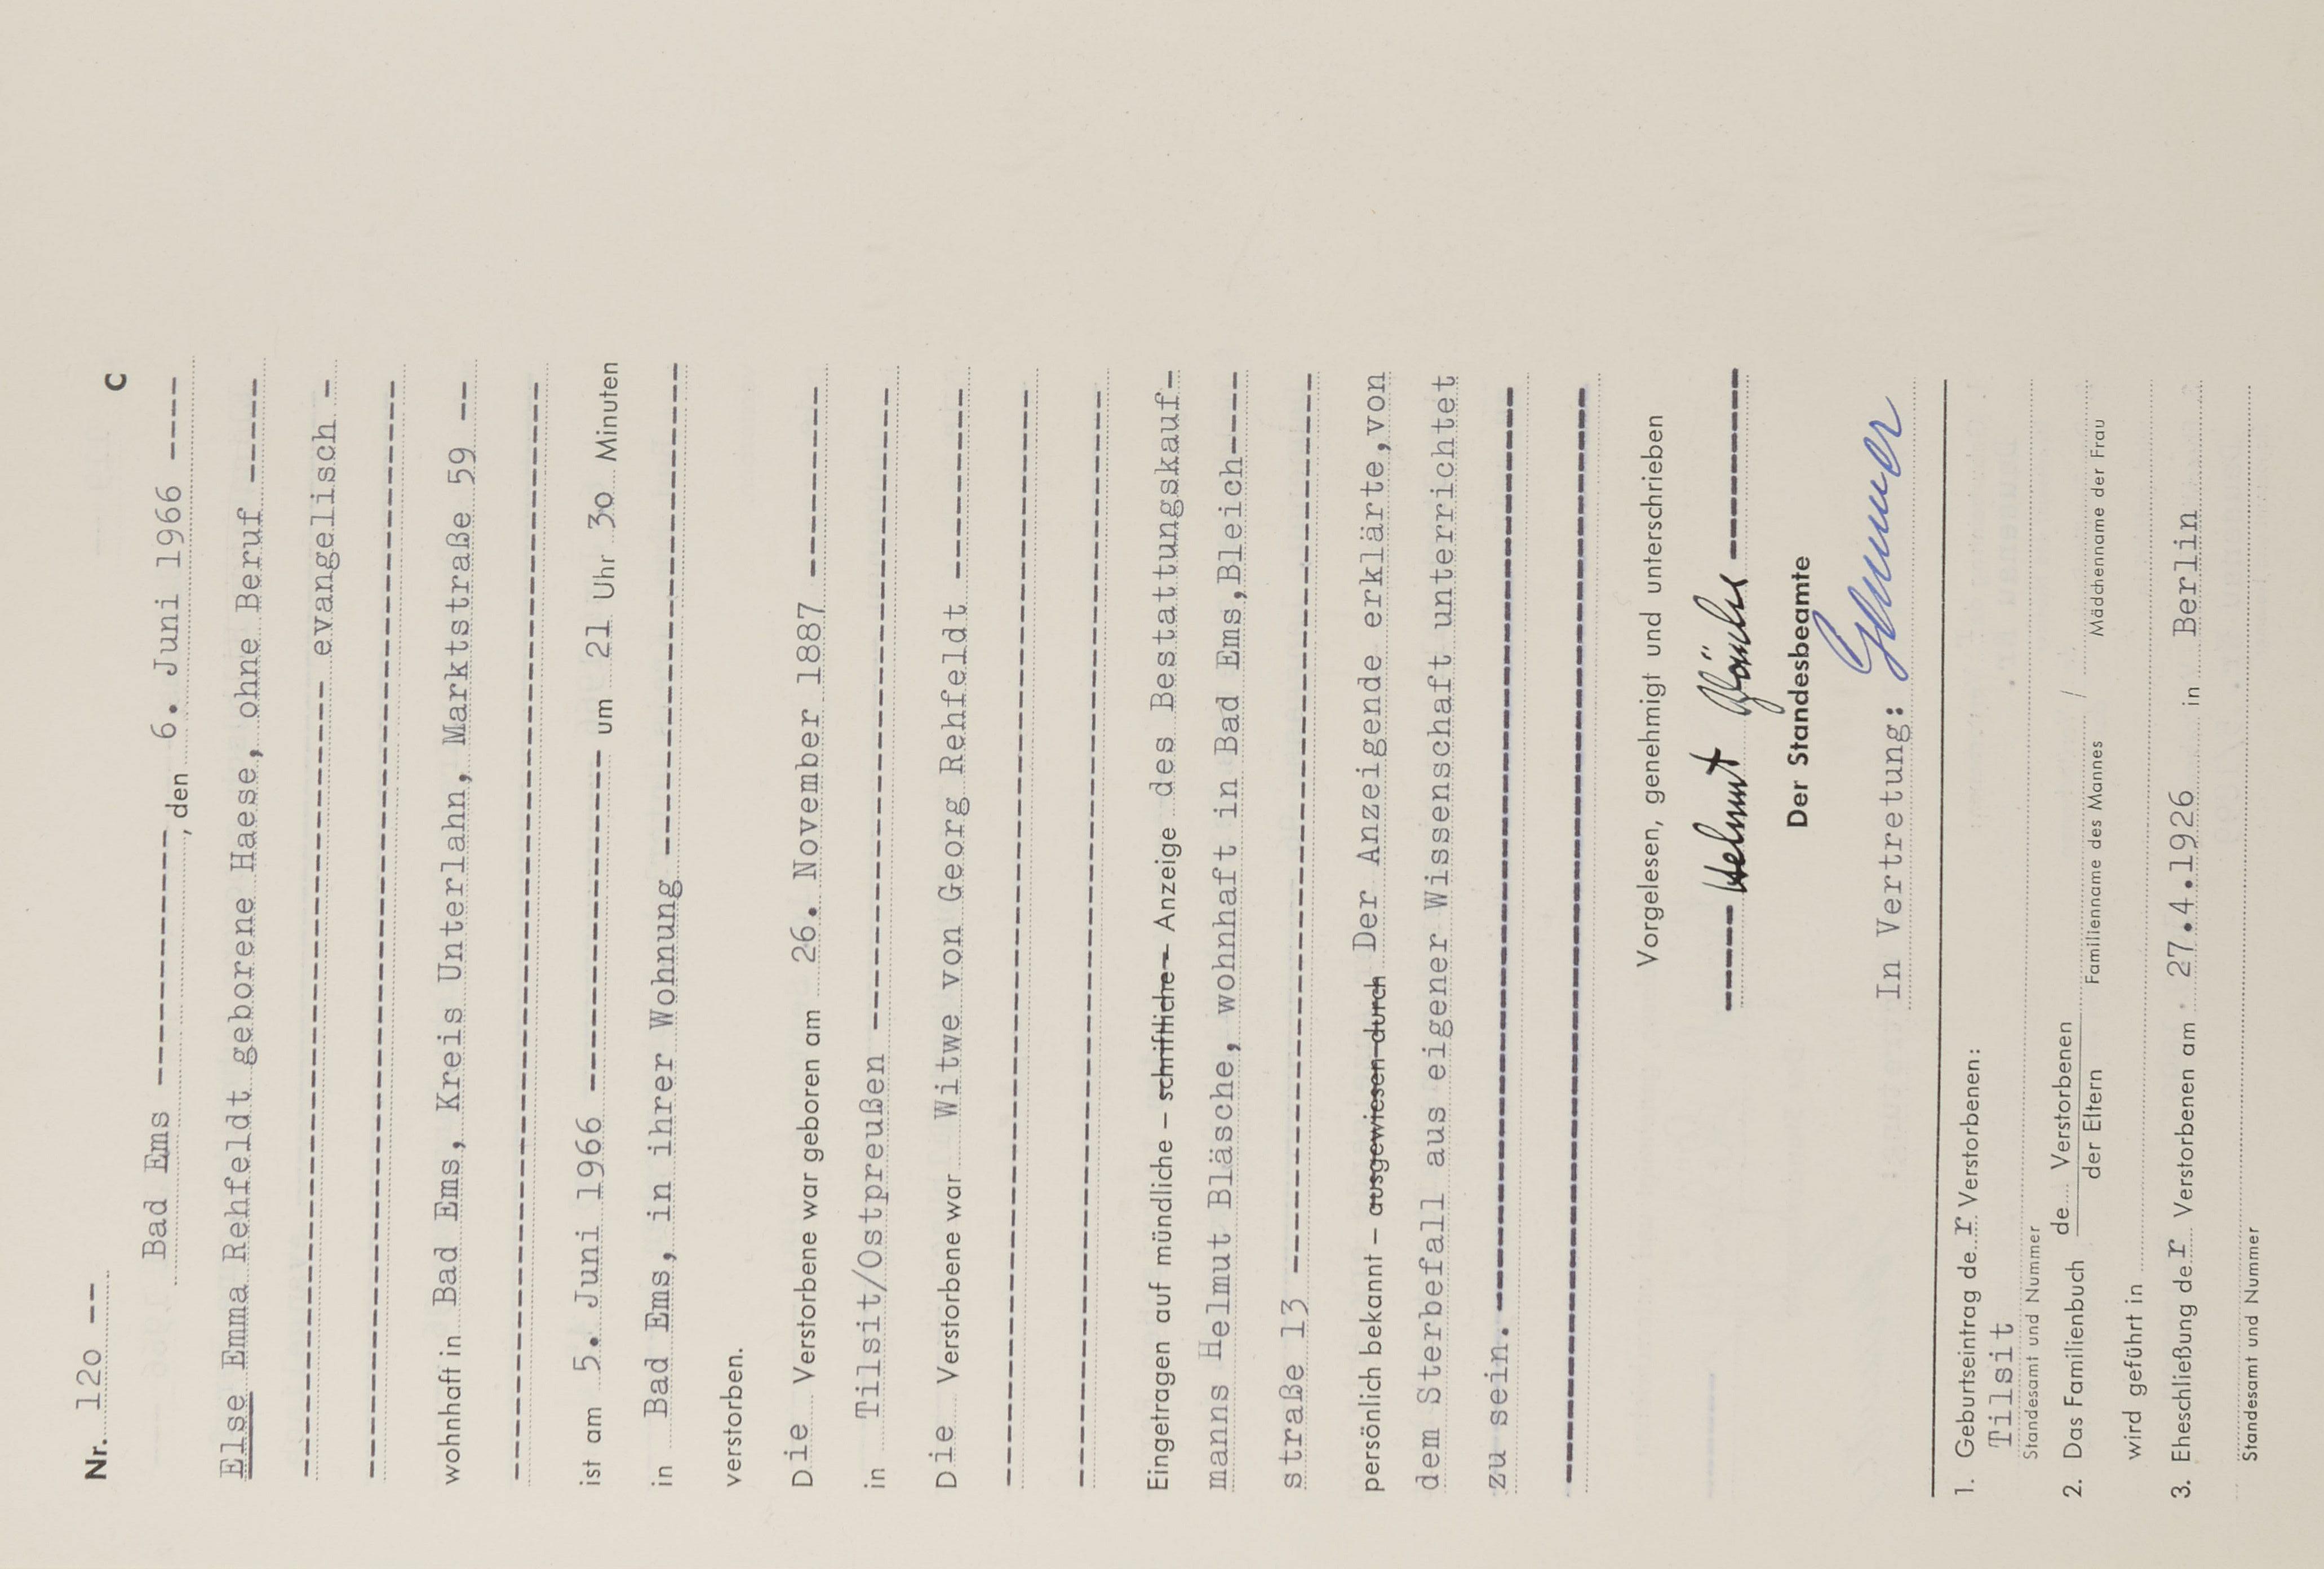 Nr. 12o --
C
Bad Ems ------------, den 6. Juni 1966 ----
Else Emma Rehfeldt geborene Haese, ohne Beruf -----
------------------------------------ evangelisch -
wohnhaft in Bad Ems, Kreis Unterlahn, Marktstraße 59 --
ist am 5. Juni 1966 ---------------- um 21 Uhr 3o Minuten
in Bad Ems, in ihrer Wohnung -----------------------
verstorben.
Die Verstorbene war geboren am 26. November 1887 ---------
in Tilsit/Ostpreußen ------------------------------
Die Verstorbene war Witwe von Georg Rehfeldt ---------
Eingetragen auf mündliche – schriftliche – Anzeige des Bestattungskauf-
manns Helmut Bläsche, wohnhaft in Bad Ems,Bleich----
straße 13 ------------------------------------------
persönlich bekannt – ausgewiesen durch Der Anzeigende erklärte,von
dem Sterbefall aus eigener Wissenschaft unterrichtet
zu sein. --------------------------------------------
Vorgelesen, genehmigt und unterschrieben
----- Helmut Bläsche ---------
Der Standesbeamte
In Vertretung:
1. Geburtseintrag der Verstorbenen:
Tilsit
Standesamt und Nummer
2. Das Familienbuch de Verstorbenen /
der Eltern Familienname des Mannes Mädchenname der Frau
wird geführt in
3. Eheschließung der Verstorbenen am 27.4.1926 in Berlin
Standesamt und Nummer